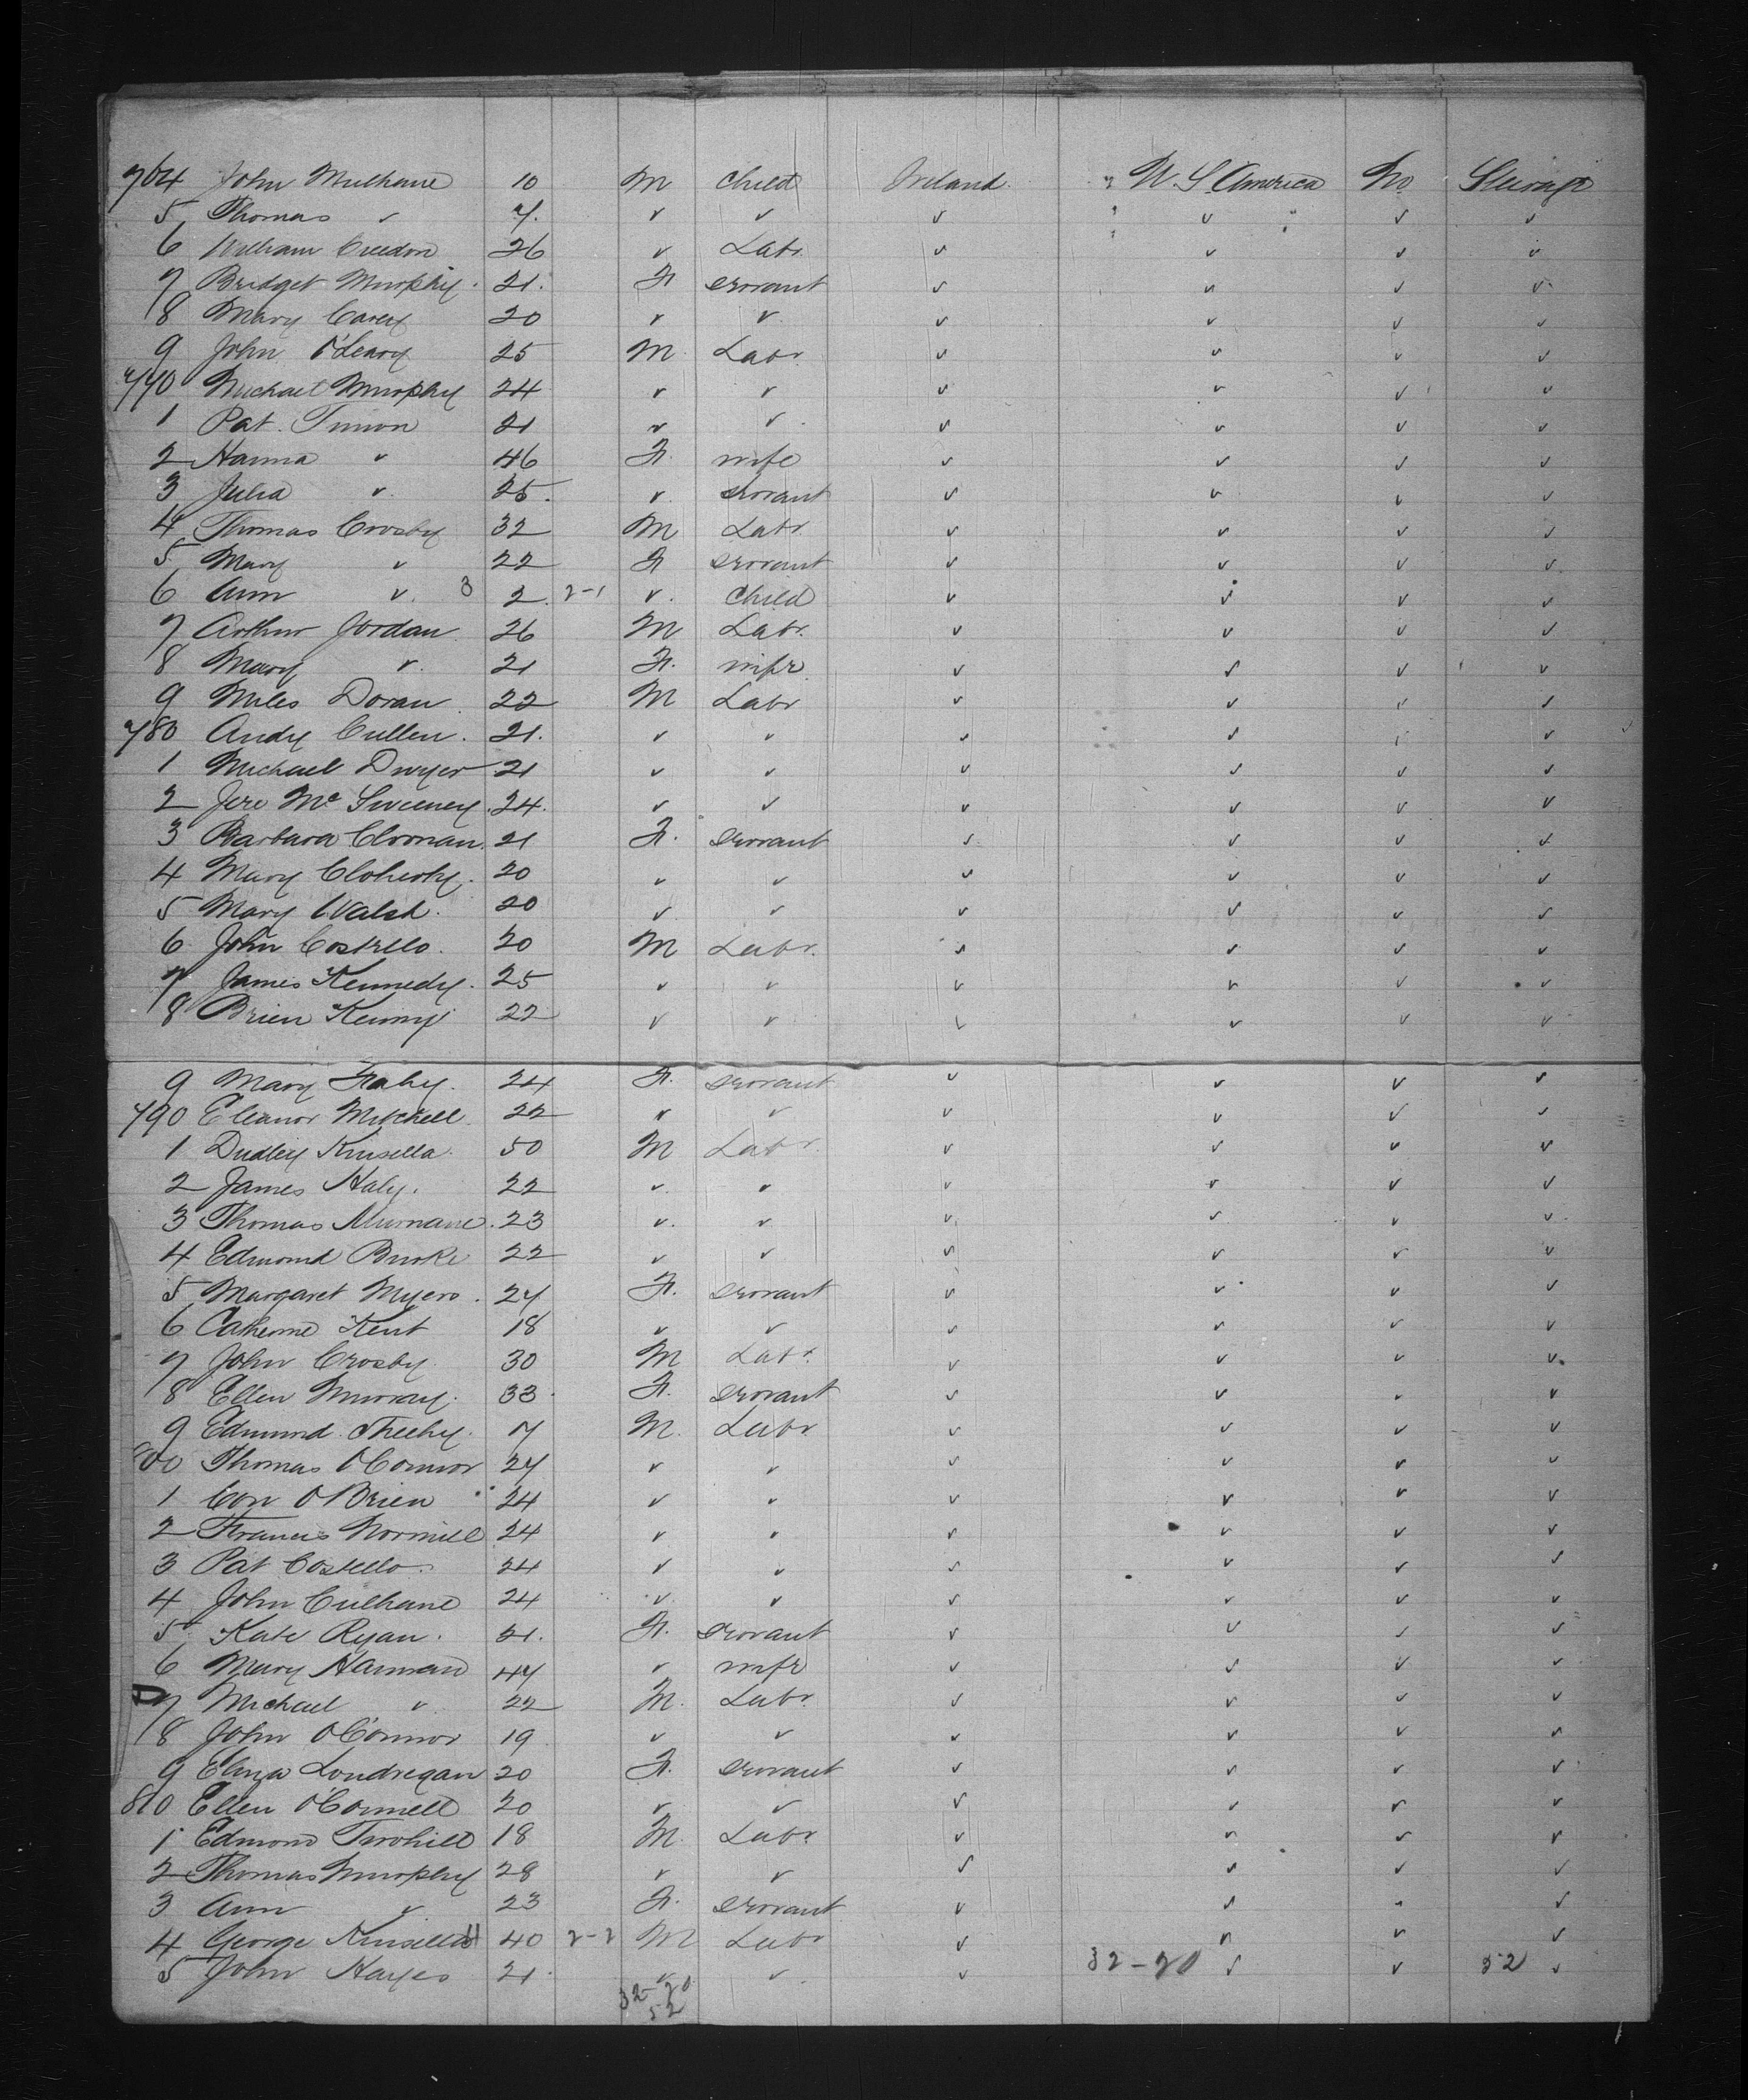 764 John Mulhane 10 M Child Ireland U. S. America No Steerage
5 Thomas v 7. v v v v v v
6 William Creedon 26 v Labr. v v v v
7 Bridget Murphy. 21. F servant v v v v
8 Mary Carey 20 v v v v v v
9 John O'Leary 25 M Labr. v v v v
770 Michael Murphy 24 v v v v v v
1 Pat. Timon 21 v v v v v v
2 Hanna v 46 F. wife v v v v
3 Julia v 25. v servant v v v v
4 Thomas Crosby 32 M Labr. v v v v
5 Mary v 22 F servant v v v v
6 Ann v. 3 2. 2-1 v. Child v v v v
7 Arthur Jordan 26 M Labr. v v v v
8 Mary v. 21 F. wife v v v v
9 Miles Doran 22 M Labr v v v v
780 Andy Cullen. 21. v v v v v v
1 Michael Dwyer 21 v v v v v v
2 Jere Mc Sweeney. 24. v v v v v v
3 Barbara Cloonan. 21 F. servant v v v v
4 Mary Cloherty. 20 v v v v v v
5 Mary Walsh. 20 v v v v v v
6 John Costello. 20 M Labr. v v v v
7 James Kennedy. 25 v v v v v v
8 Brien Kenny 22 v v v v v v
9 Mary Fahy. 24 F. servant v v v v
790 Eleanor Mitchell. 22 v v v v v v
1 Dudley Kinsella. 50 M Labr. v v v v
2 James Haly. 22 v. v v v v v
3 Thomas Murnane. 23 v. v v v v v
4 Edmond Burke 22 v v v v v v
5 Margaret Myers. 24 F. servant v v v v
6 Catherine Kent 18 v v v v v v
7 John Crosby. 30 M Labr. v v v v
8 Ellen Murray. 33. F. servant v v v v
9 Edmund Sheehy. 17 M. Labr. v v v v
800 Thomas O'Connor 24 v v v v v v
1 Con O'Brien 24 v v v v v v
2 Francis Normill 24 v v v v v v
3 Pat Costello. 24 v v v v v v
4 John Culhane 24 v v v v v v
5 Kate Ryan. 21. F. servant v v v v
6 Mary Hannan 47 v wife v v v v
7 Michael v 22 M. Labr. v v v v
8 John O'Connor 19 v v v v v v
9 Eliza Londregan 20 F. servant v v v v
810 Ellen O'Connell 20 v v v v v v
1 Edmond Twohill 18 M. Labr. v v v v
2 Thomas Murphy 28 v v v v v v
3 Ann v 23 F. servant v v v v
4 George Kinsella 40 2-2 M Labr v v v v
5 John Hayes 21. v v. v 32-20 v v 52 v
32-20
52